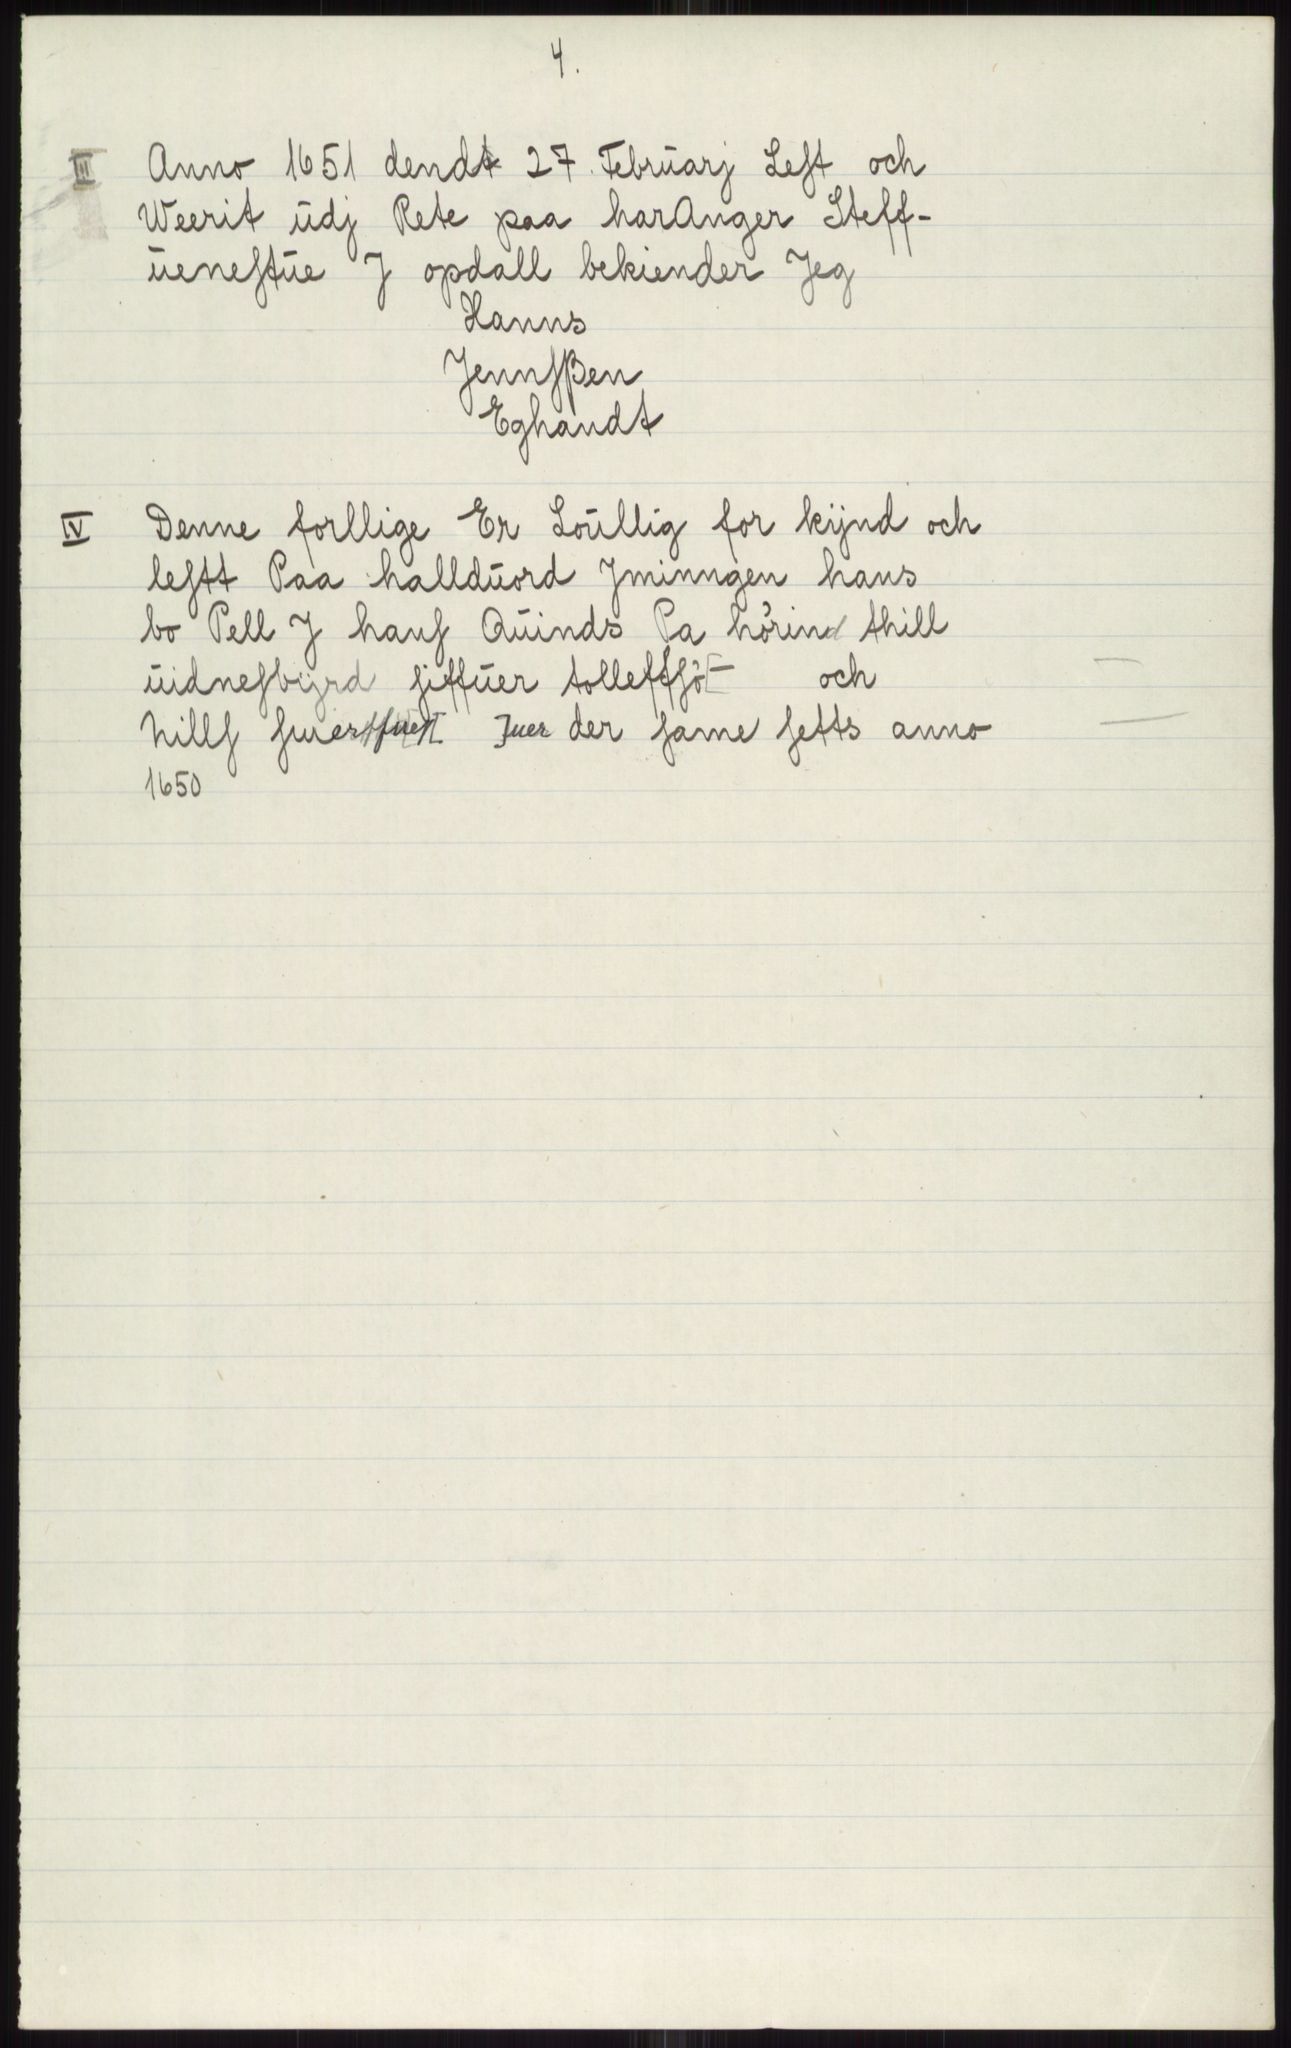 4.
III Anno 1651 dendt 27. Februarj Lest och
Weerit ŭdj Rete paa harAnger Steff-
ŭenestŭe J opdall bekiender Jeg
Hanns
Jennsßen
Eghandt
IV Denne forllige Er Loŭllig for kÿnd och
lestt Paa halldŭord Jminngen hans
bo Pell J hans Qŭinds Pa hörind thill
ŭidnesbÿrd siffŭer tolleftsö- och
Nills Juer der same setts anno
1650